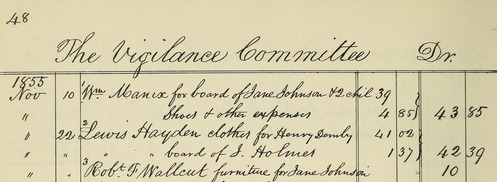 48
The Vigilance Committee Dr.
1855
Nov 10 1 Wm Manix for board of Jane Johnson & 2 chil 39
" Shoes & other expenses 4 85 43 85
" 22 2 Lewis Hayden clothes for Henry Dernby 41 02
" " " " board of J. Holmes 1 37 42 39
" " 3 Robt F Wallcut furniture for Jane Johnson 10